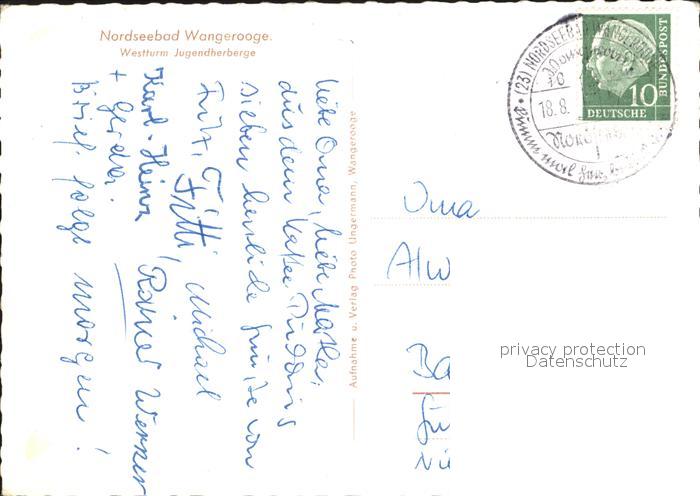 Nordseebad Wangerooge.
Westturm Jugendherberge
Liebe Oma, liebe
aus dem Kaffee Pudding
sieben herzliche Grüsse von
Fritz, Fitti, Michael
Karl-Heinz, Rainer Werner
+ Gerda.
Brief folgt morgen!
Aufnahme u. Verlag Photo Ungermann, Wangerooge
(23) NORDSEEBAD WANGEROOGE
18.8.
10
DEUTSCHE
BUNDESPOST
Oma
Alw
privacy protection
Datenschutz